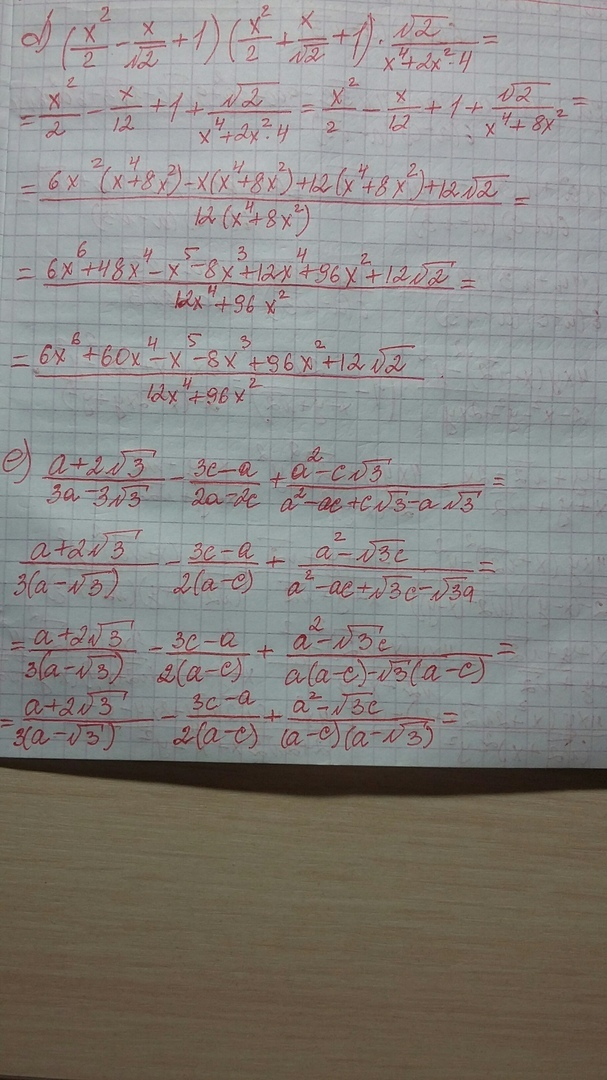 d) (x²/2 - x/√2 + 1) (x²/2 + x/√2 + 1) · √2/(x⁴+2x²·4) =
= x²/2 - x/12 + 1 + √2/(x⁴+2x²·4) = x²/2 - x/12 + 1 + √2/(x⁴+8x²) =
= (6x²(x⁴+8x²) - x(x⁴+8x²) + 12(x⁴+8x²) + 12√2)/(12(x⁴+8x²)) =
= (6x⁶+48x⁴-x⁵-8x³+12x⁴+96x²+12√2)/(12x⁴+96x²) =
= (6x⁶+60x⁴-x⁵-8x³+96x²+12√2)/(12x⁴+96x²).
e) (a+2√3)/(3a-3√3) - (3c-a)/(2a-2c) + (a²-c√3)/(a²-ac+c√3-a√3) =
(a+2√3)/(3(a-√3)) - (3c-a)/(2(a-c)) + (a²-√3c)/(a²-ac+√3c-√3a) =
= (a+2√3)/(3(a-√3)) - (3c-a)/(2(a-c)) + (a²-√3c)/(a(a-c)-√3(a-c)) =
= (a+2√3)/(3(a-√3)) - (3c-a)/(2(a-c)) + (a²-√3c)/((a-c)(a-√3)) =